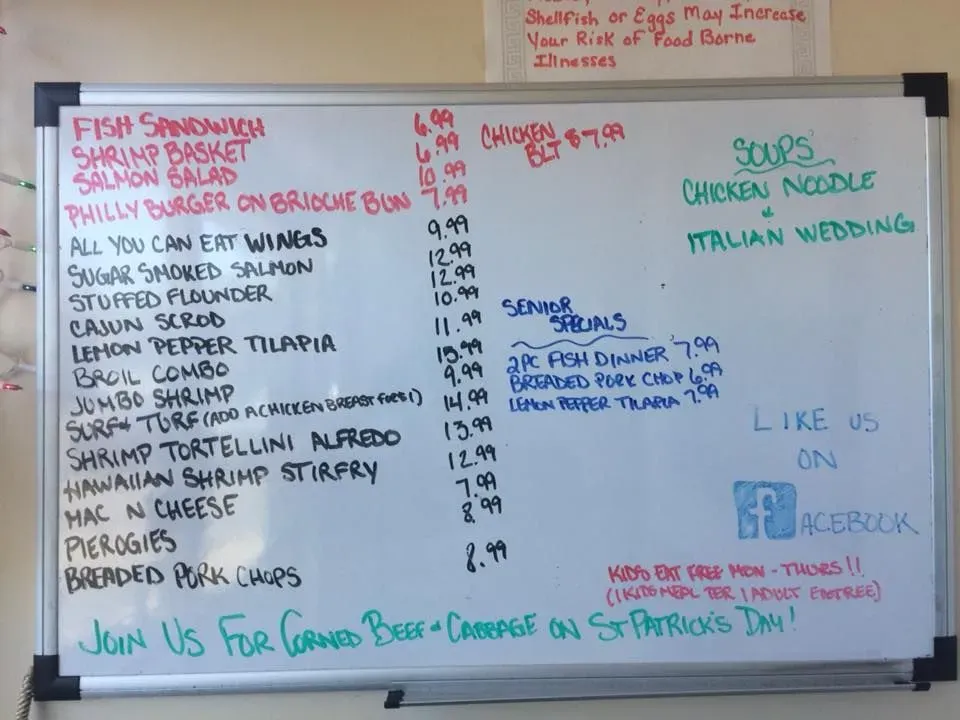 Shellfish or Eggs May Increase
Your Risk of Food Borne
Illnesses
FISH SANDWICH 6.99
SHRIMP BASKET 6.99
SALMON SALAD 10.99
PHILLY BURGER ON BRIOCHE BUN 7.99
ALL YOU CAN EAT WINGS 9.99
SUGAR SMOKED SALMON 12.99
STUFFED FLOUNDER 12.99
CAJUN SCROD 10.99
LEMON PEPPER TILAPIA 11.99
BROIL COMBO 15.99
JUMBO SHRIMP 9.99
SURF & TURF (ADD A CHICKEN BREAST FOR $1) 14.99
SHRIMP TORTELLINI ALFREDO 13.99
HAWAIIAN SHRIMP STIRFRY 12.99
MAC N CHEESE 7.99
PIEROGIES 8.99
BREADED PORK CHOPS 8.99
CHICKEN
BLT $7.99
SOUPS
CHICKEN NOODLE
&
ITALIAN WEDDING
SENIOR
SPECIALS
2PC FISH DINNER 7.99
BREADED PORK CHOP 6.99
LEMON PEPPER TILAPIA 7.99
LIKE US
ON
FACEBOOK
KIDS EAT FREE MON - THURS!!
(1 KIDS MEAL PER 1 ADULT ENTREE)
JOIN US FOR CORNED BEEF & CABBAGE ON ST PATRICK'S DAY!